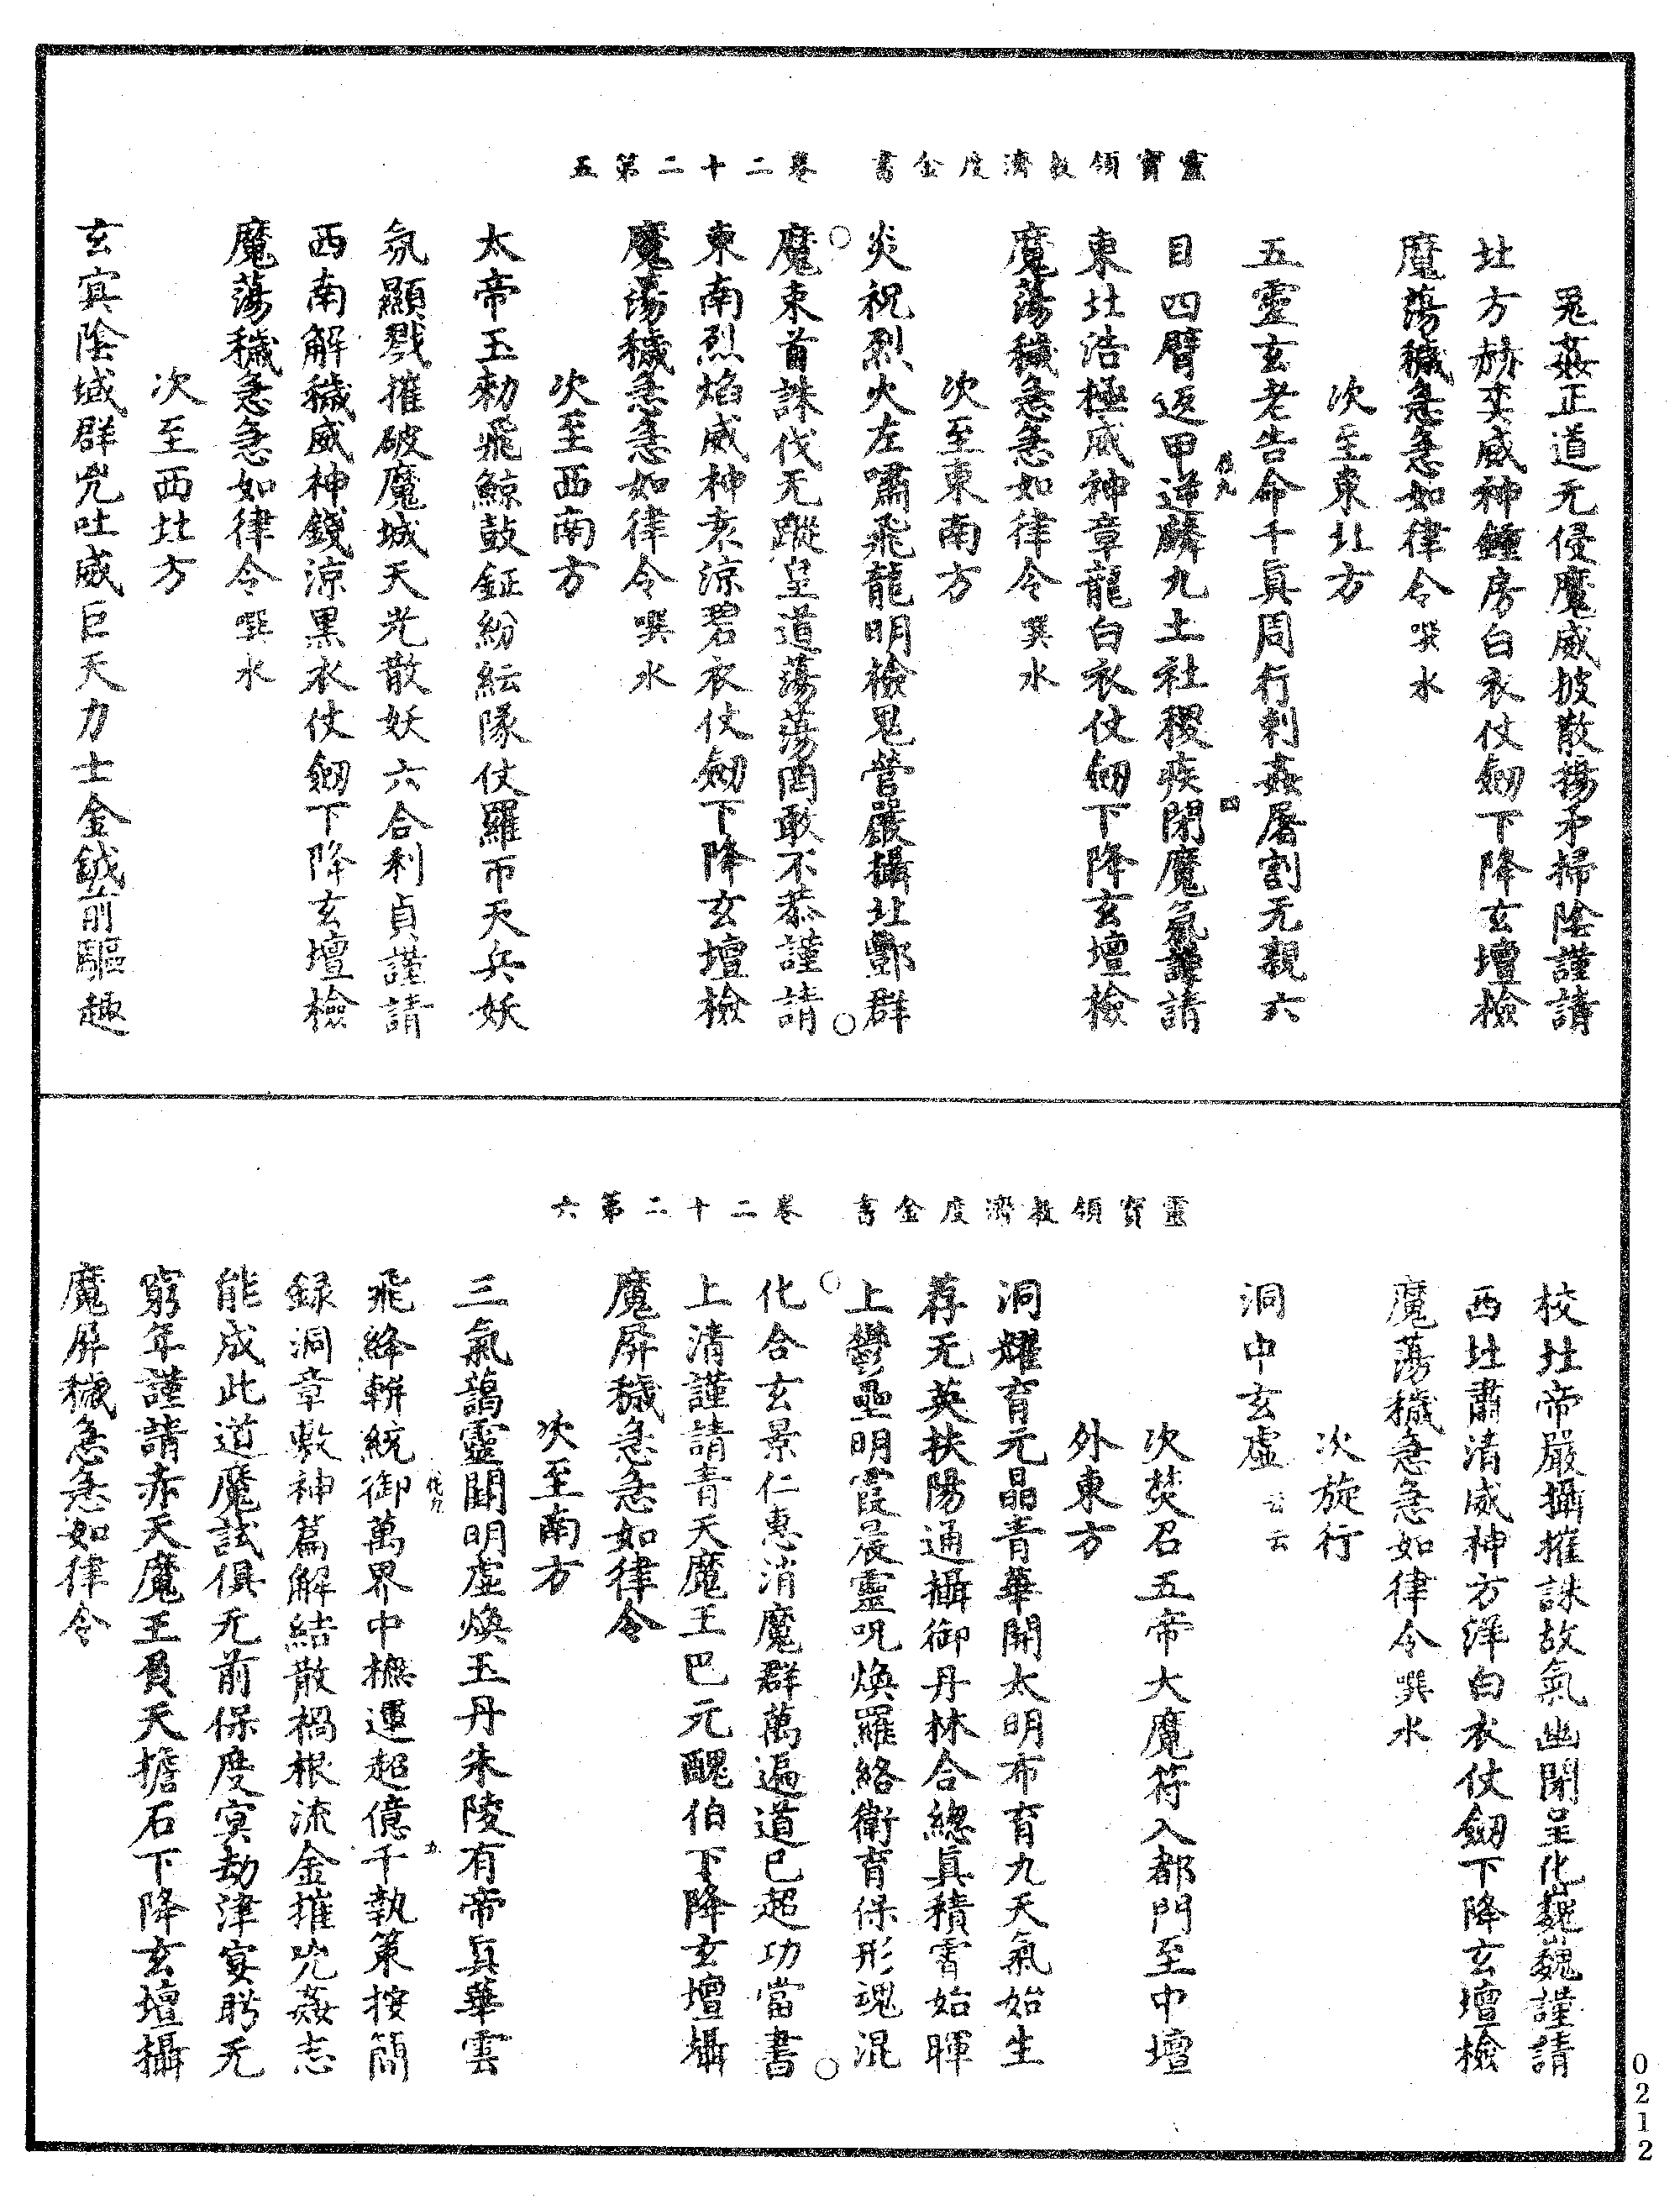 靈寶領教濟度金書　卷二十二第五
鬼姦正道无侵魔威披散揚矛掃陰謹請
北方赫奕威神鍾房白衣仗劒下降玄壇檢
魔蕩穢急急如律令噀水
次至東北方
五靈玄老告命千眞周行刺姦屠割无親六
四
目四臂返甲逆麟九土社稷疾閉魔氣謹請
東北浩極威神章龍白衣仗劒下降玄壇檢
魔蕩穢急急如律令噀水
次至東南方
炎祝烈火左嘯飛龍明檢鬼營嚴攝北酆群
魔束首誅伐无蹤皇道蕩蕩罔敢不恭謹請
東南烈焰威神袁涼碧衣仗劒下降玄壇檢
魔蕩穢急急如律令噀水
次至西南方
太帝玉勑飛鯨鼓鉦紛紜隊仗羅帀天兵妖
氛顯戮摧破魔城天光散妖六合利貞謹請
西南解穢威神錢涼黑衣仗劒下降玄壇檢
魔蕩穢急急如律令噀水
次至西北方
玄寞陰域群兇吐威巨天力士金鉞前驅趣
靈寶領教濟度金書　卷二十二第六
校北帝嚴攝摧誅故氣幽閉呈化巍巍謹請
西北肅清威神方洋白衣仗劒下降玄壇檢
魔蕩穢急急如律令噀水
次旋行
洞中玄虛云云
次焚召五帝大魔符入都門至中壇
外東方
洞耀育元晶青華開太明布育九天氣始生
荐无英扶陽通攝御丹林合緫眞積霄始暉
上鬱壘明霞晨靈呪煥羅絡衛育保形魂混
化合玄景仁惠消魔群萬遍道已超功當書
上清謹請青天魔王巴元醜伯下降玄壇攝
魔屏穢急急如律令
次至南方
三氣藹靈關明虛煥玉丹朱陵有帝眞華雲
九
飛絳軿統御萬界中撫運超億千執策按簡
録洞章敷神篇解結散禍根流金摧兇姦志
能成此道魔試俱无前保度寞劫津宴眄无
窮年謹請赤天魔王負天擔石下降玄壇攝
魔屏穢急急如律令
0212